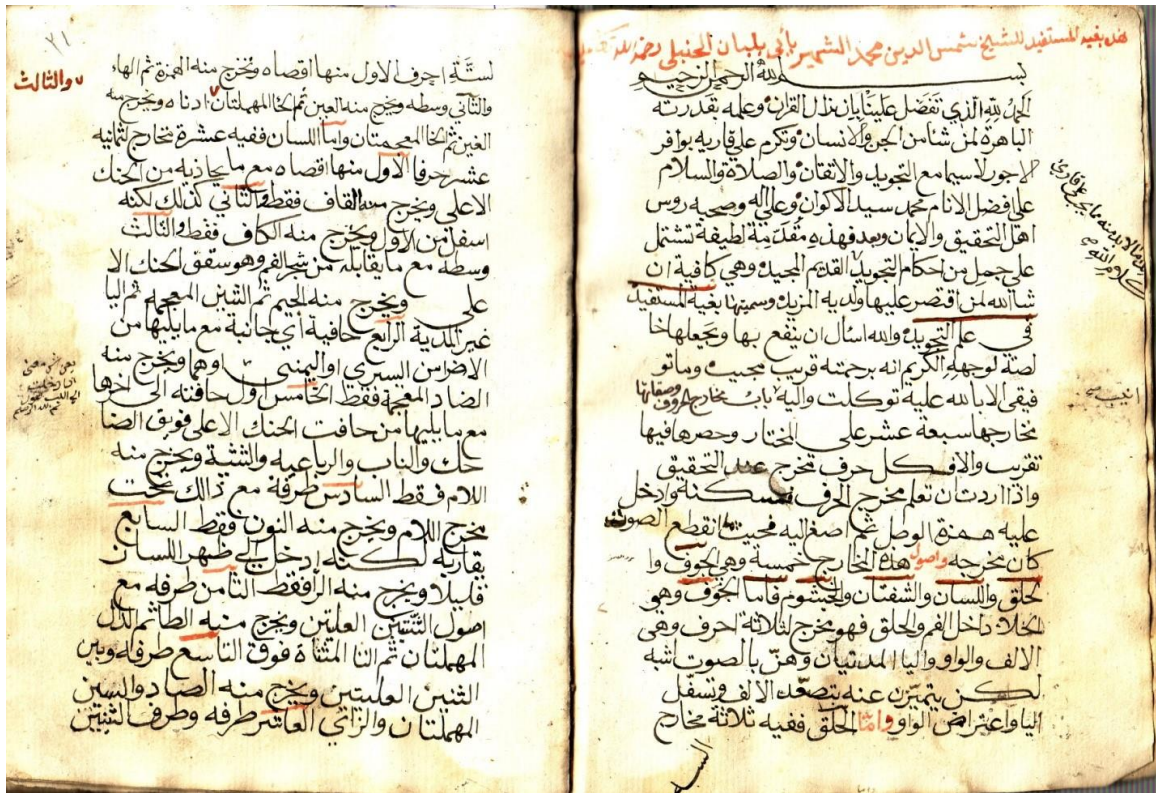 هذه بغية المستفيد للشيخ شمس الدين محمد الشهير بابن بلبان الحنبلي رحمه الله
بسم الله الرحمن الرحيم
الحمد لله الذي تفضل علينا بانزال القران وعلمه بقدرته
الباهرة لمن شا من الجن والانسان وتكرم علي قاريه بوافر
الاجور لاسيما مع التجويد والاتقان والصلاة والسلام
علي افضل الانام محمد سيد الاكوان وعلي اله وصحبه روس
اهل التحقيق والايمان وبعد فهذه مقدمة لطيفة تشتمل
علي جمل من احكام التجويد القديم المجيد وهي كافية ان
شا الله لمن اقتصر عليها ولديه المزيد وسميتها بغية المستفيد
في علم التجويد والله اسأل ان ينفع بها ويجعلها خا
لصة لوجهه الكريم انه برحمته قريب مجيب وما تو
فيقي الا بالله عليه توكلت واليه انيب باب مخارج الحروف وصفاتها
مخارجها سبعة عشر علي المختار وحصرها فيها
تقريب والا فكل حرف مخرج عند التحقيق
واذا اردت ان تعلم مخرج الحرف فسكنه وادخل
عليه همزة الوصل ثم اصغ اليه فحيث انقطع الصوت
كان مخرجه واصول هذه المخارج خمسة وهي الجوف وا
لحلق واللسان والشفتان والخيشوم فاما الجوف وهو
الخلا داخل الفم والحلق فهو مخرج لثلاثة احرف وهي
الالف والواو واليا المدتيان وهن بالصوت اشبه
لكن يتميزن عنه بتصعد الالف وتسفل
اليا واعتراض الواو واما الحلق ففيه ثلاثة مخارج
٢١
لستة احرف الاول منها اقصاه ويخرج منه الهمزة ثم الهاء
والثاني وسطه ويخرج منه العين ثم الحا المهملتان ادناه ويخرج منه
والثالث
الغين ثم الخا المعجمتان واما اللسان ففيه عشرة مخارج لثمانيه
عشر حرفا الاول منها اقصاه مع ما يحاذيه من الحنك
الاعلي ويخرج منه القاف فقط والثاني كذلك لكنه
اسفل من الاول ويخرج منه الكاف فقط والثالث
وسطه مع ما يقابله من شجر الفم وهو سقف الحنك الا
علي ويخرج منه الجيم ثم الشين المعجمه ثم اليا
غير المدية الرابع حافية اي جانبة مع ما يليها من
الاضراس اليسري او اليمني اوهما ويخرج منه
الضاد المعجمة فقط الخامس اول حافته الي اخرها
مع ما يليها من حافت الحنك الاعلي فويق الضا
حك والناب والرباعيه والثنية ويخرج منه
اللام فقط السادس طرفه مع ذالك تحت
مخرج اللام ويخرج منه النون فقط السابع
يقاربه لكنه ادخل الي ظهر اللسان
قليلا ويخرج منه الرا فقط الثامن طرفه مع
اصول الثنيتين العليتين ويخرج منه الطا ثم الدال
المهملتان ثم التا المثناة فوق التاسع طرفه وبين
الثنيتين العليتين ويخرج منه الصاد والسين
المهملتان والزاي العاشر طرفه وطرف الثنيتين